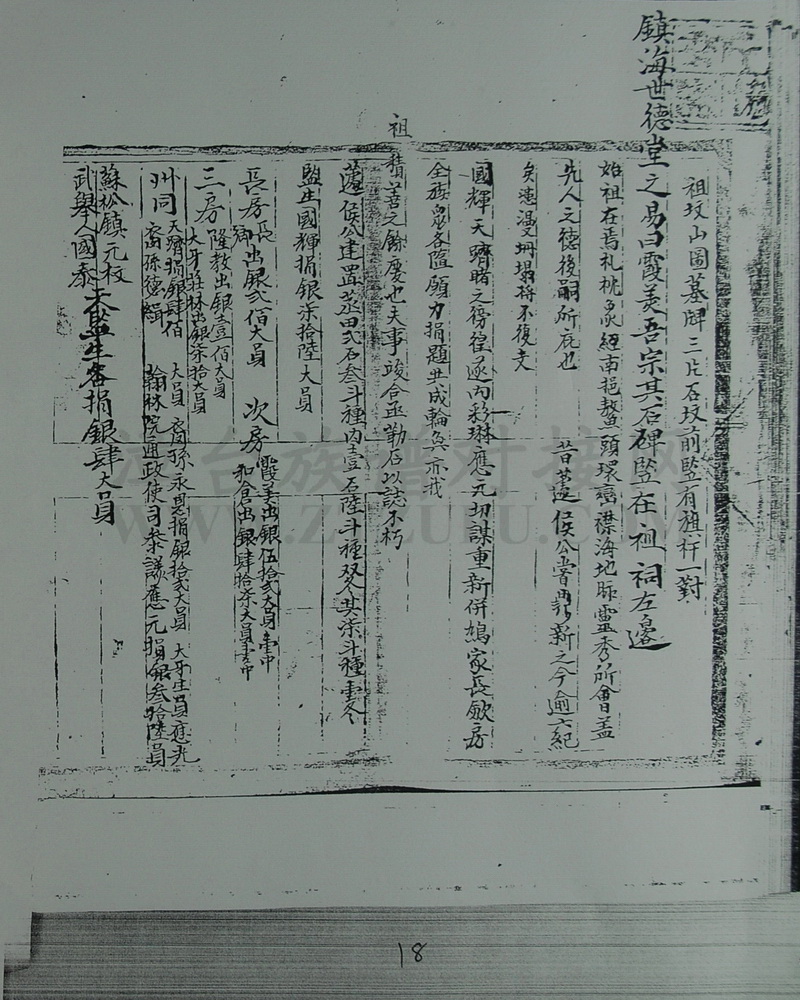 祖坟山圖墓牌三片石坟前監有旗杆一對
鎮海世德堂之易白霞美吾宗其石碑監在祖祠左邊
始祖在焉礼桃象經南挹鰲頭環襟海地脉靈秀所會盖
先人之德後嗣所庇也 昔蓬侯公嘗再新之今逾六紀
矣漫坍塌將不復支
國輝天躋睹之徬徨遂内彩琳應元切謀重新併鳩家長歛房
全族衆各隨願力捐題共成輪奐亦哉
祖
積善之餘慶也夫事竣合亟勒石以誌不朽
蓬侯公建置蒸田弍石叁斗種内壹石陸斗種双冬其柒斗種壹冬
監生國輝捐銀柒拾陸大員
長房長御出銀弍佰大員 次房霞美出銀伍拾弍大員壹中 和倉出銀肆拾柒大員壹中
三房隆教出銀壹佰大員 大牙庄林出銀柒拾大員
州同天躋捐銀肆佰大員 裔孫永恩捐銀拾弍大員 大牙生員應光
裔孫德緝 翰林院通政使司叅議應元捐銀叁拾陸員
蘇松鎮元校
武舉人國泰 太監生各捐銀肆大員
18